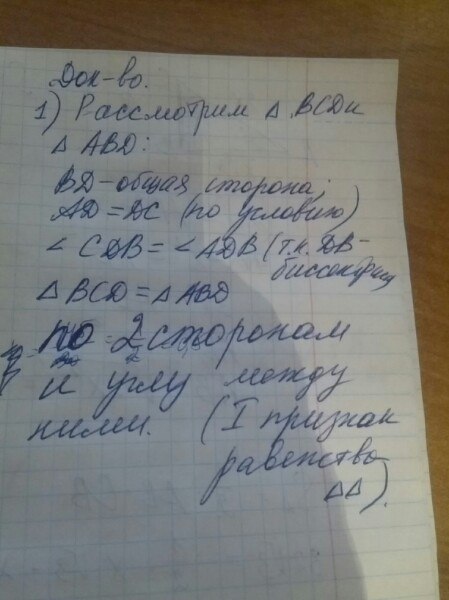 Док-во.
1) Рассмотрим △ BCD и
△ ABD:
BD - общая сторона;
AD = DC (по условию)
∠ CDB = ∠ ADB (т.к. DB -
биссектриса
△ BCD = △ ABD
по 2 сторонам
и углу между
ними. (I признак
равенства
△△).